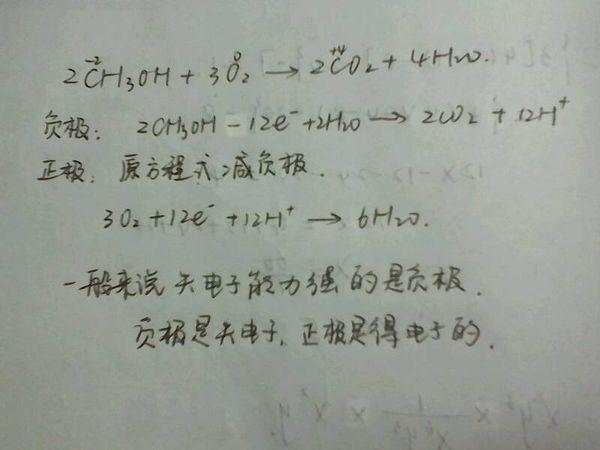 -2 0 +4
2CH₃OH + 3O₂ → 2CO₂ + 4H₂O.
负极: 2CH₃OH - 12e⁻ + 2H₂O → 2CO₂ + 12H⁺
正极: 原方程式减负极.
3O₂ + 12e⁻ + 12H⁺ → 6H₂O.
一般来说失电子能力强的是负极.
负极是失电子, 正极是得电子的.